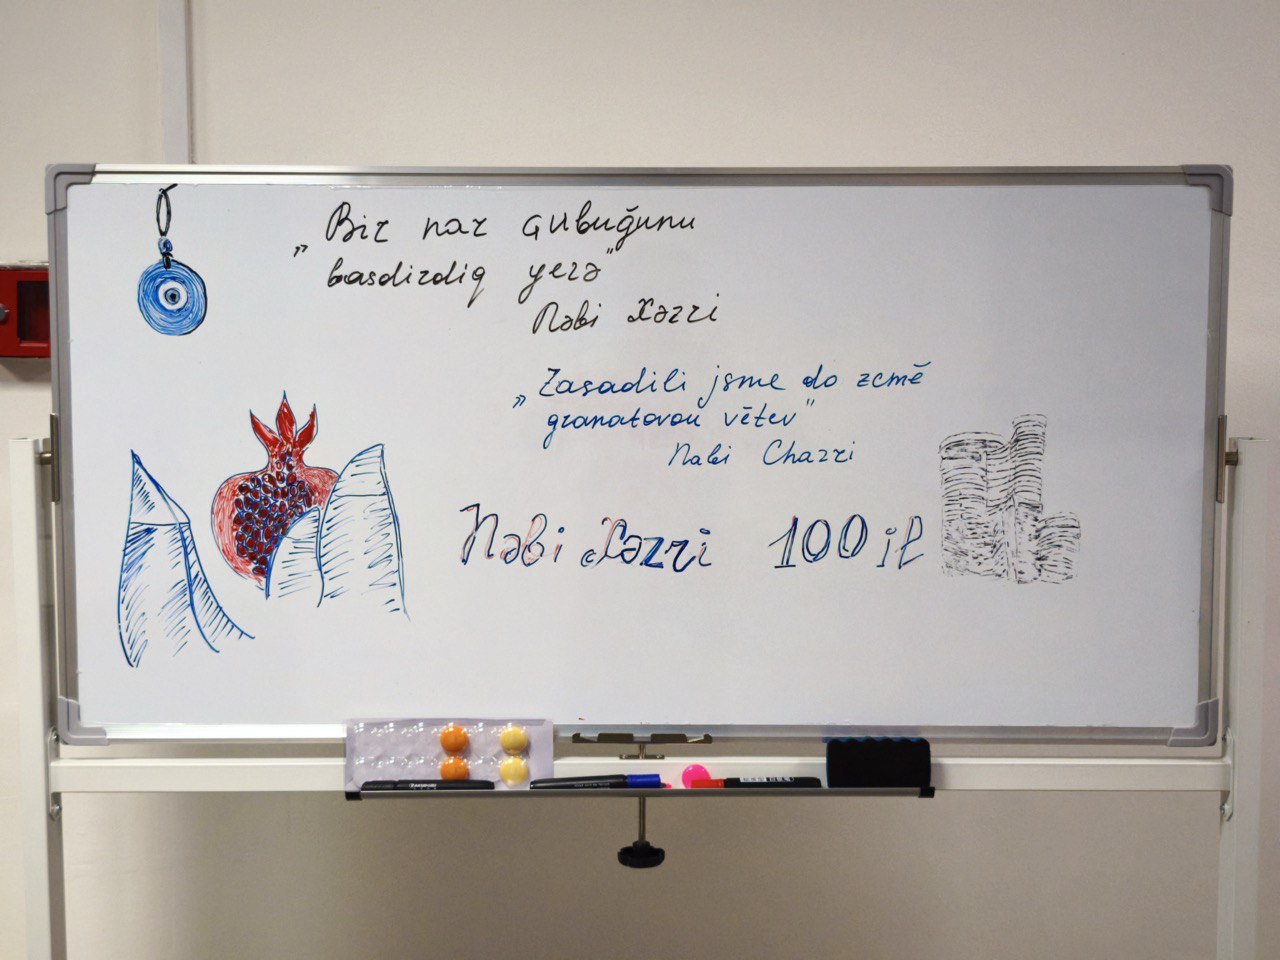 „Bir nar çubuğunu
basdirdiq yerə"
Nəbi Xəzri
„Zasadili jsme do země
granatovou větev"
Nabi Chazri
Nəbi Xəzri 100 il